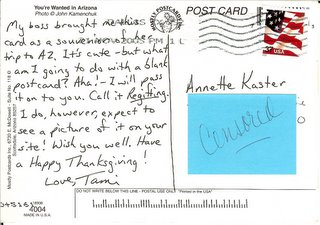 You're Wanted in Arizona
Photo © John Kamenchuk
POST CARD
My boss brought me this
card as a souvenir of her
trip to AZ. It's cute - but what
am I going to do with a blank
postcard? Aha! - I will pass
it on to you. Call it Regifting.
I do, however, expect to
see a picture of it on your
site! Wish you well. Have
a Happy Thanksgiving!
Love, Tami
Annette Kaster
Censored
USA
DO NOT WRITE BELOW THIS LINE - POSTAGE USE ONLY "Printed in the USA"
4004
MADE IN U.S.A.